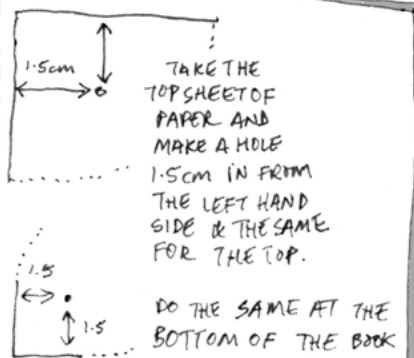 1.5cm
TAKE THE
TOP SHEET OF
PAPER AND
MAKE A HOLE
1.5cm IN FROM
THE LEFT HAND
SIDE & THE SAME
FOR THE TOP.
1.5
1.5
DO THE SAME AT THE
BOTTOM OF THE BOOK